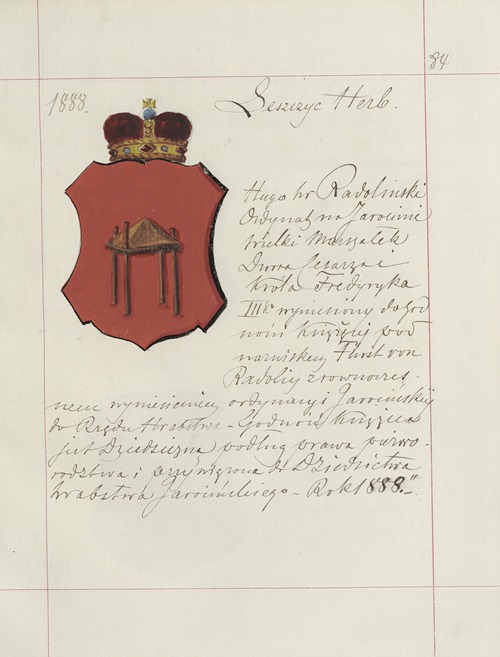 84
1888.
Leszczyc Herb.
Hugo hr Radolinski
Ordynat na Jarocinie
wielki Marszałek
Dworu Cesarza i
Króla Fryderyka
III<sup>o</sup> wyniesiony do god
ności Książęcej pod
nazwiskiem Fürst von
Radolin z równoczes,
nem wyniesieniem ordynacyi Jarocińskiej
do Rzędu Hrabstwa – Godność Książęca
jest Dziedziczna podług prawa pierwo-
rodztwa i przywiązana do Dziedzictwa
hrabstwa Jarocińskiego – Rok 1888."